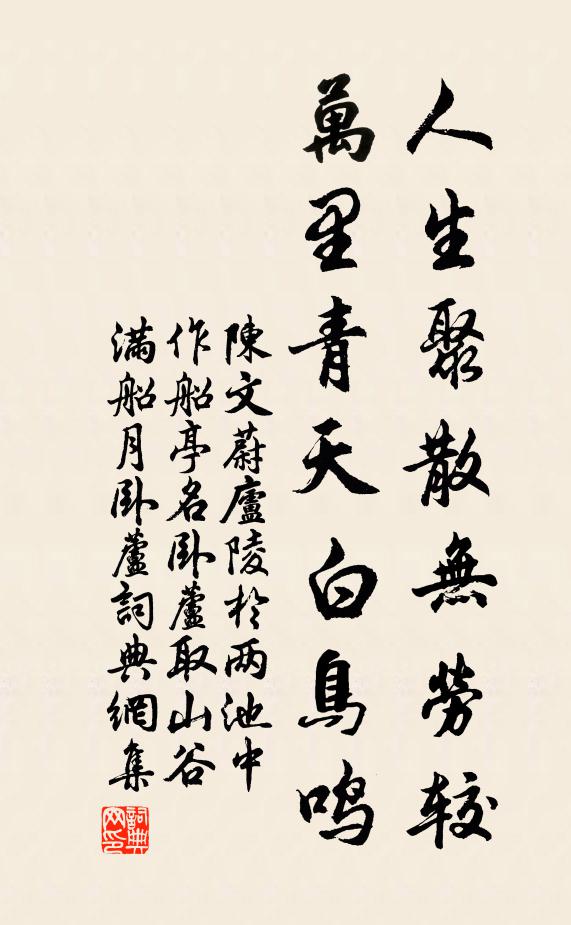 人生聚散無勞较
萬里青天白鳥鸣
陳文蔚廬陵於两池中
作船亭名卧蘆取山谷
满船月卧蘆詞典網集
詞典网印